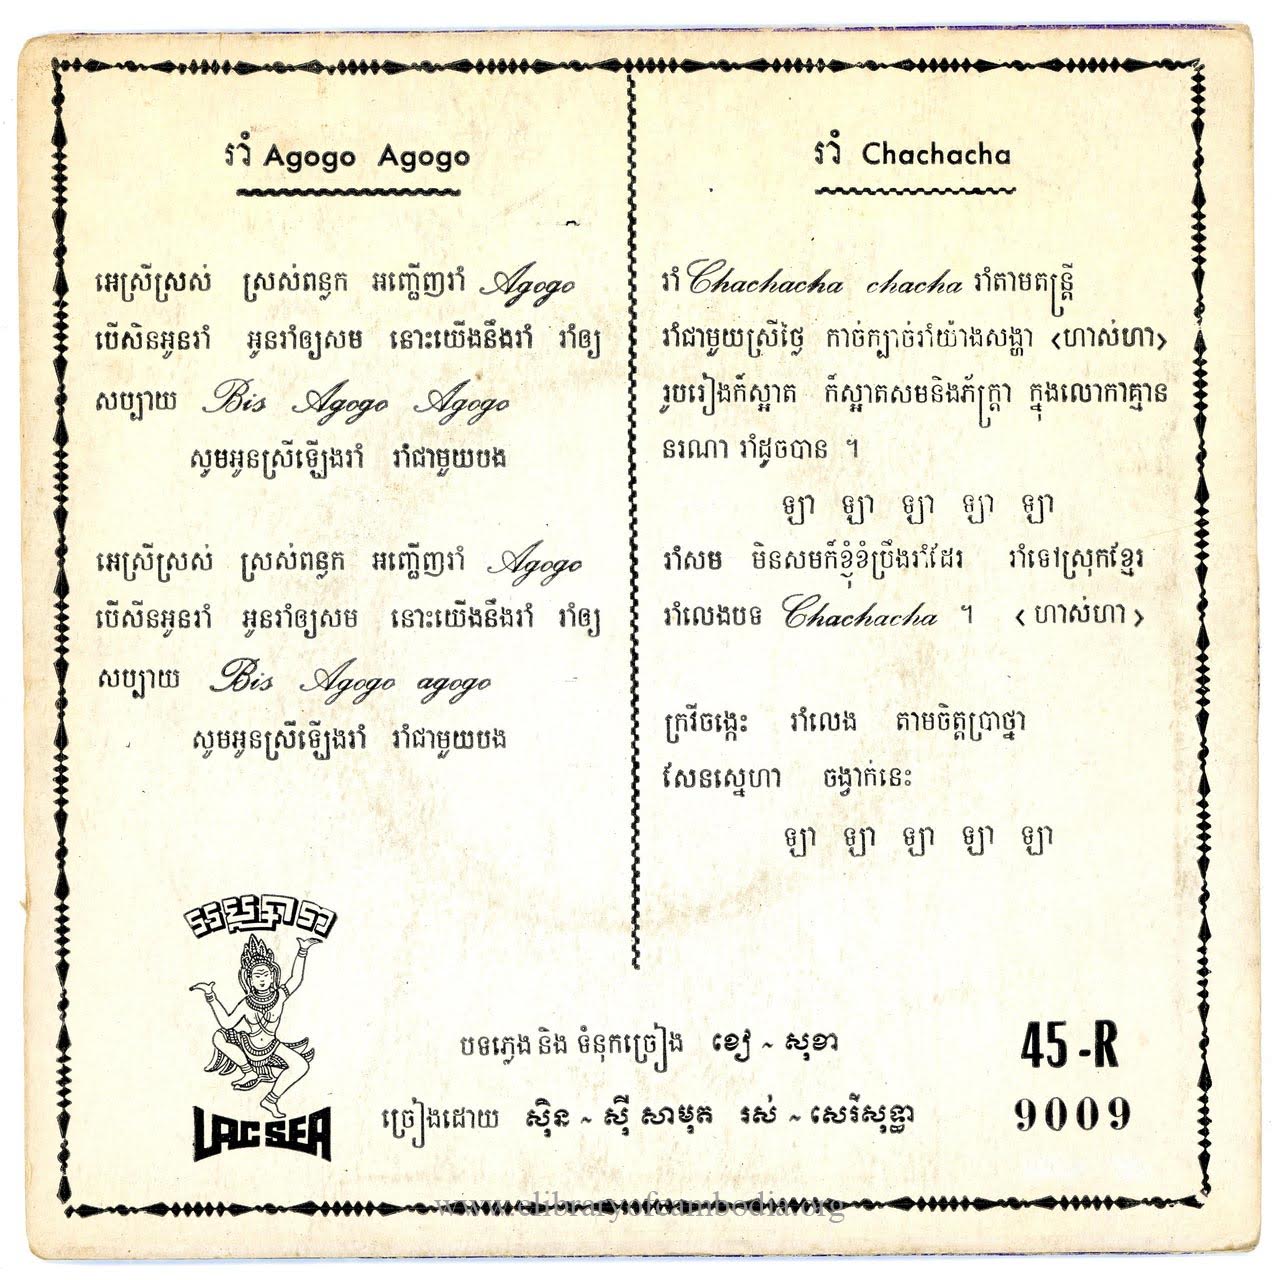 រាំ Agogo Agogo
អេស្រីស្រស់ ស្រស់ពន្លក អញ្ជើញរាំ Agogo
បើសិនអូនរាំ អូនរាំឲ្យសម នោះយើងនឹងរាំ រាំឲ្យ
សប្បាយ Bis Agogo Agogo
សូមអូនស្រីឡើងរាំ រាំជាមួយបង
អេស្រីស្រស់ ស្រស់ពន្លក អញ្ជើញរាំ Agogo
បើសិនអូនរាំ អូនរាំឲ្យសម នោះយើងនឹងរាំ រាំឲ្យ
សប្បាយ Bis Agogo agogo
សូមអូនស្រីឡើងរាំ រាំជាមួយបង
រាំ Chachacha
រាំ Chachacha chacha រាំតាមតន្ត្រី
រាំជាមួយស្រីថ្លៃ កាច់ក្បាច់រាំយ៉ាងសង្ហា <ហាស់ហា>
រូបរៀងក៏ស្អាត ក៏ស្អាតសមនិងភ័ក្ត្រា ក្នុងលោកាគ្មាន
នរណា រាំដូចបាន ។
ឡា ឡា ឡា ឡា ឡា
រាំសម មិនសមក៏ខ្ញុំខំប្រឹងរាំដែរ រាំទៅស្រុកខ្មែរ
រាំលេងបទ Chachacha ។ <ហាស់ហា>
ក្រវីចង្កេះ រាំលេង តាមចិត្តប្រាថ្នា
សែនស្នេហា ចង្វាក់នេះ
ឡា ឡា ឡា ឡា ឡា
LAC SEA
បទភ្លេង និង ទំនុកច្រៀង ខៀវ ~ សុខា
ច្រៀងដោយ ស៊ិន ~ ស៊ី សាមុត រស់ ~ សេរីសុទ្ធា
45-R
9009
www.elibraryofcambodia.org